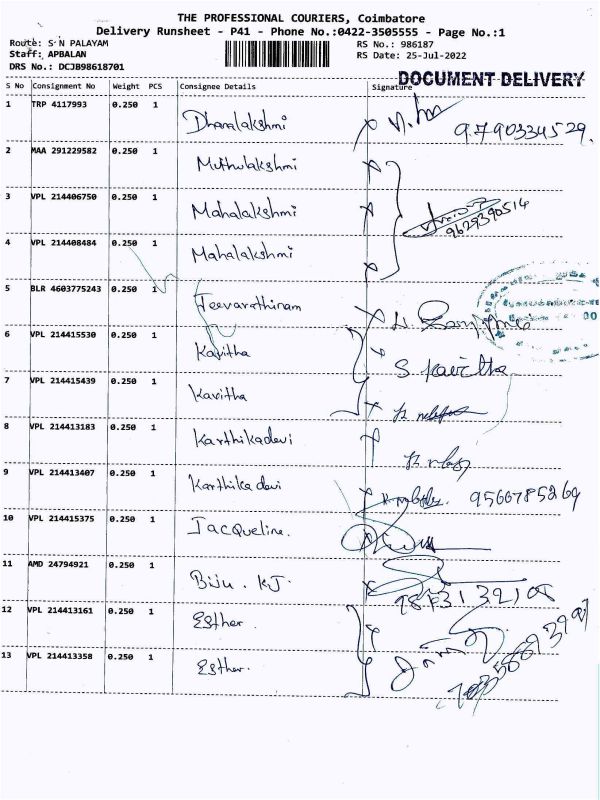 THE PROFESSIONAL COURIERS, Coimbatore
Delivery Runsheet - P41 - Phone No.:0422-3505555 - Page No.:1
Route: S N PALAYAM RS No.: 986187
Staff: APBALAN RS Date: 25-Jul-2022
DRS No.: DCJB98618701
DOCUMENT DELIVERY
S No Consignment No Weight PCS Consignee Details Signature
1 TRP 4117993 0.250 1 Dhanalakshmi 9790334529.
2 MAA 291229582 0.250 1 Muthulakshmi
3 VPL 214406750 0.250 1 Mahalakshmi 9629390514
4 VPL 214408484 0.250 1 Mahalakshmi
5 BLR 4603775243 0.250 1 Jeevarathinam
6 VPL 214415530 0.250 1 Kavitha S. Kavitha
7 VPL 214415439 0.250 1 Kavitha
8 VPL 214413183 0.250 1 Karthikadevi
9 VPL 214413407 0.250 1 Karthikadevi 9566785269
10 VPL 214415375 0.250 1 Jacqueline.
11 AMD 24794921 0.250 1 Biju. KJ.
12 VPL 214413161 0.250 1 Esther.
13 VPL 214413358 0.250 1 Esther.